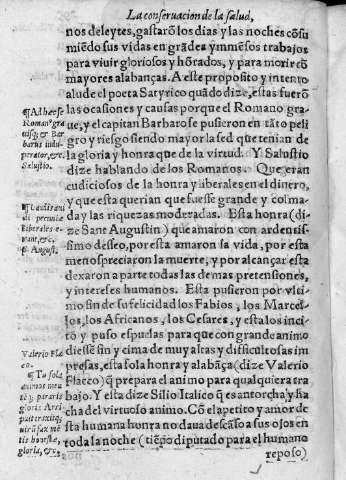 La conseruacion de la salud,
nos deleytes, gastarõ los dias y las noches cõsu
miẽdo sus vidas en grãdes ymmẽsos trabajos
para viuir gloriosos y hõrados, y para morir cõ
mayores alabanças. A este proposito y intento
alude el poeta Satyrico quãdo dize, estas fuerõ
las ocasiones y causas porque el Romano gra-
ue, y el capitan Barbaro se pusieron en tãto peli
gro y riesgo siendo mayor la sed que tenian de
la gloria y honra que de la virtud. Y Salustio
dize hablando de los Romanos. Que eran
cudiciosos de la honra y liberales en el dinero,
y que esta querian que fuesse grande y colma-
da y las riquezas moderadas. Esta honra (di-
ze Sant Augustin) que amaron con ardentis-
simo desseo, por esta amaron la vida, por esta
menospreciaron la muerte, y por alcançar esta
dexaron a parte todas las demas pretensiones,
y intereses humanos. Esta pusieron por vlti-
mo fin de su felicidad los Fabios, los Marcel-
los, los Africanos, los Cesares, y esta los inci-
to y puso espuelas para que con grande animo
diessẽ fin y cima de muy altas y difficultosas im
presas, esta sola honra y alabãça (dize Valerio
Flacco) q̃ prepara el animo para qualquiera tra
bajo. Y esta dize Silio Italico q̃ es antorcha y ha
cha del virtuoso animo. Cõ el apetito y amor de
sta humana honra no daua descãso a sus ojos en
toda la noche (tiẽpo diputado para el humano
reposo)
¶ Ad hæc se
Romanꝰ gra
uisq; & Bar
barus indu-
perator, &c.
Salustio.
¶ Laudis aui
di pecuniæ
liberales e-
rant, &c.
S. August.
Valerio Fla
co.
¶ Tu sola
animos mẽ
tẽ q̃ peraris
gloria